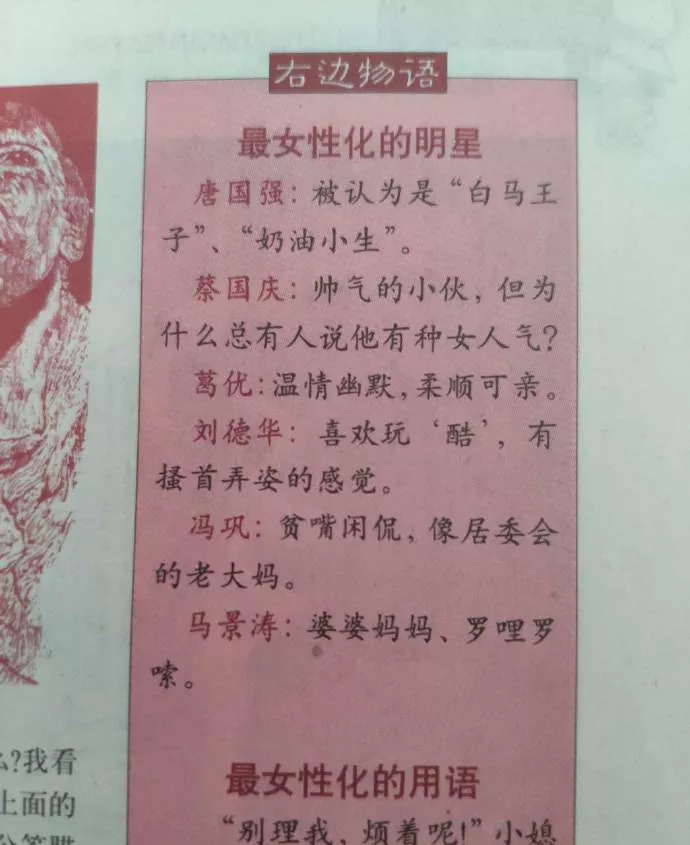 右边物语
最女性化的明星
唐国强：被认为是“白马王
子”、“奶油小生”。
蔡国庆：帅气的小伙，但为
什么总有人说他有种女人气？
葛优：温情幽默，柔顺可亲。
刘德华：喜欢玩‘酷’，有
搔首弄姿的感觉。
冯巩：贫嘴闲侃，像居委会
的老大妈。
马景涛：婆婆妈妈、罗哩罗
嗦。
最女性化的用语
“别理我、烦着呢！”小媳
?我看
上面的